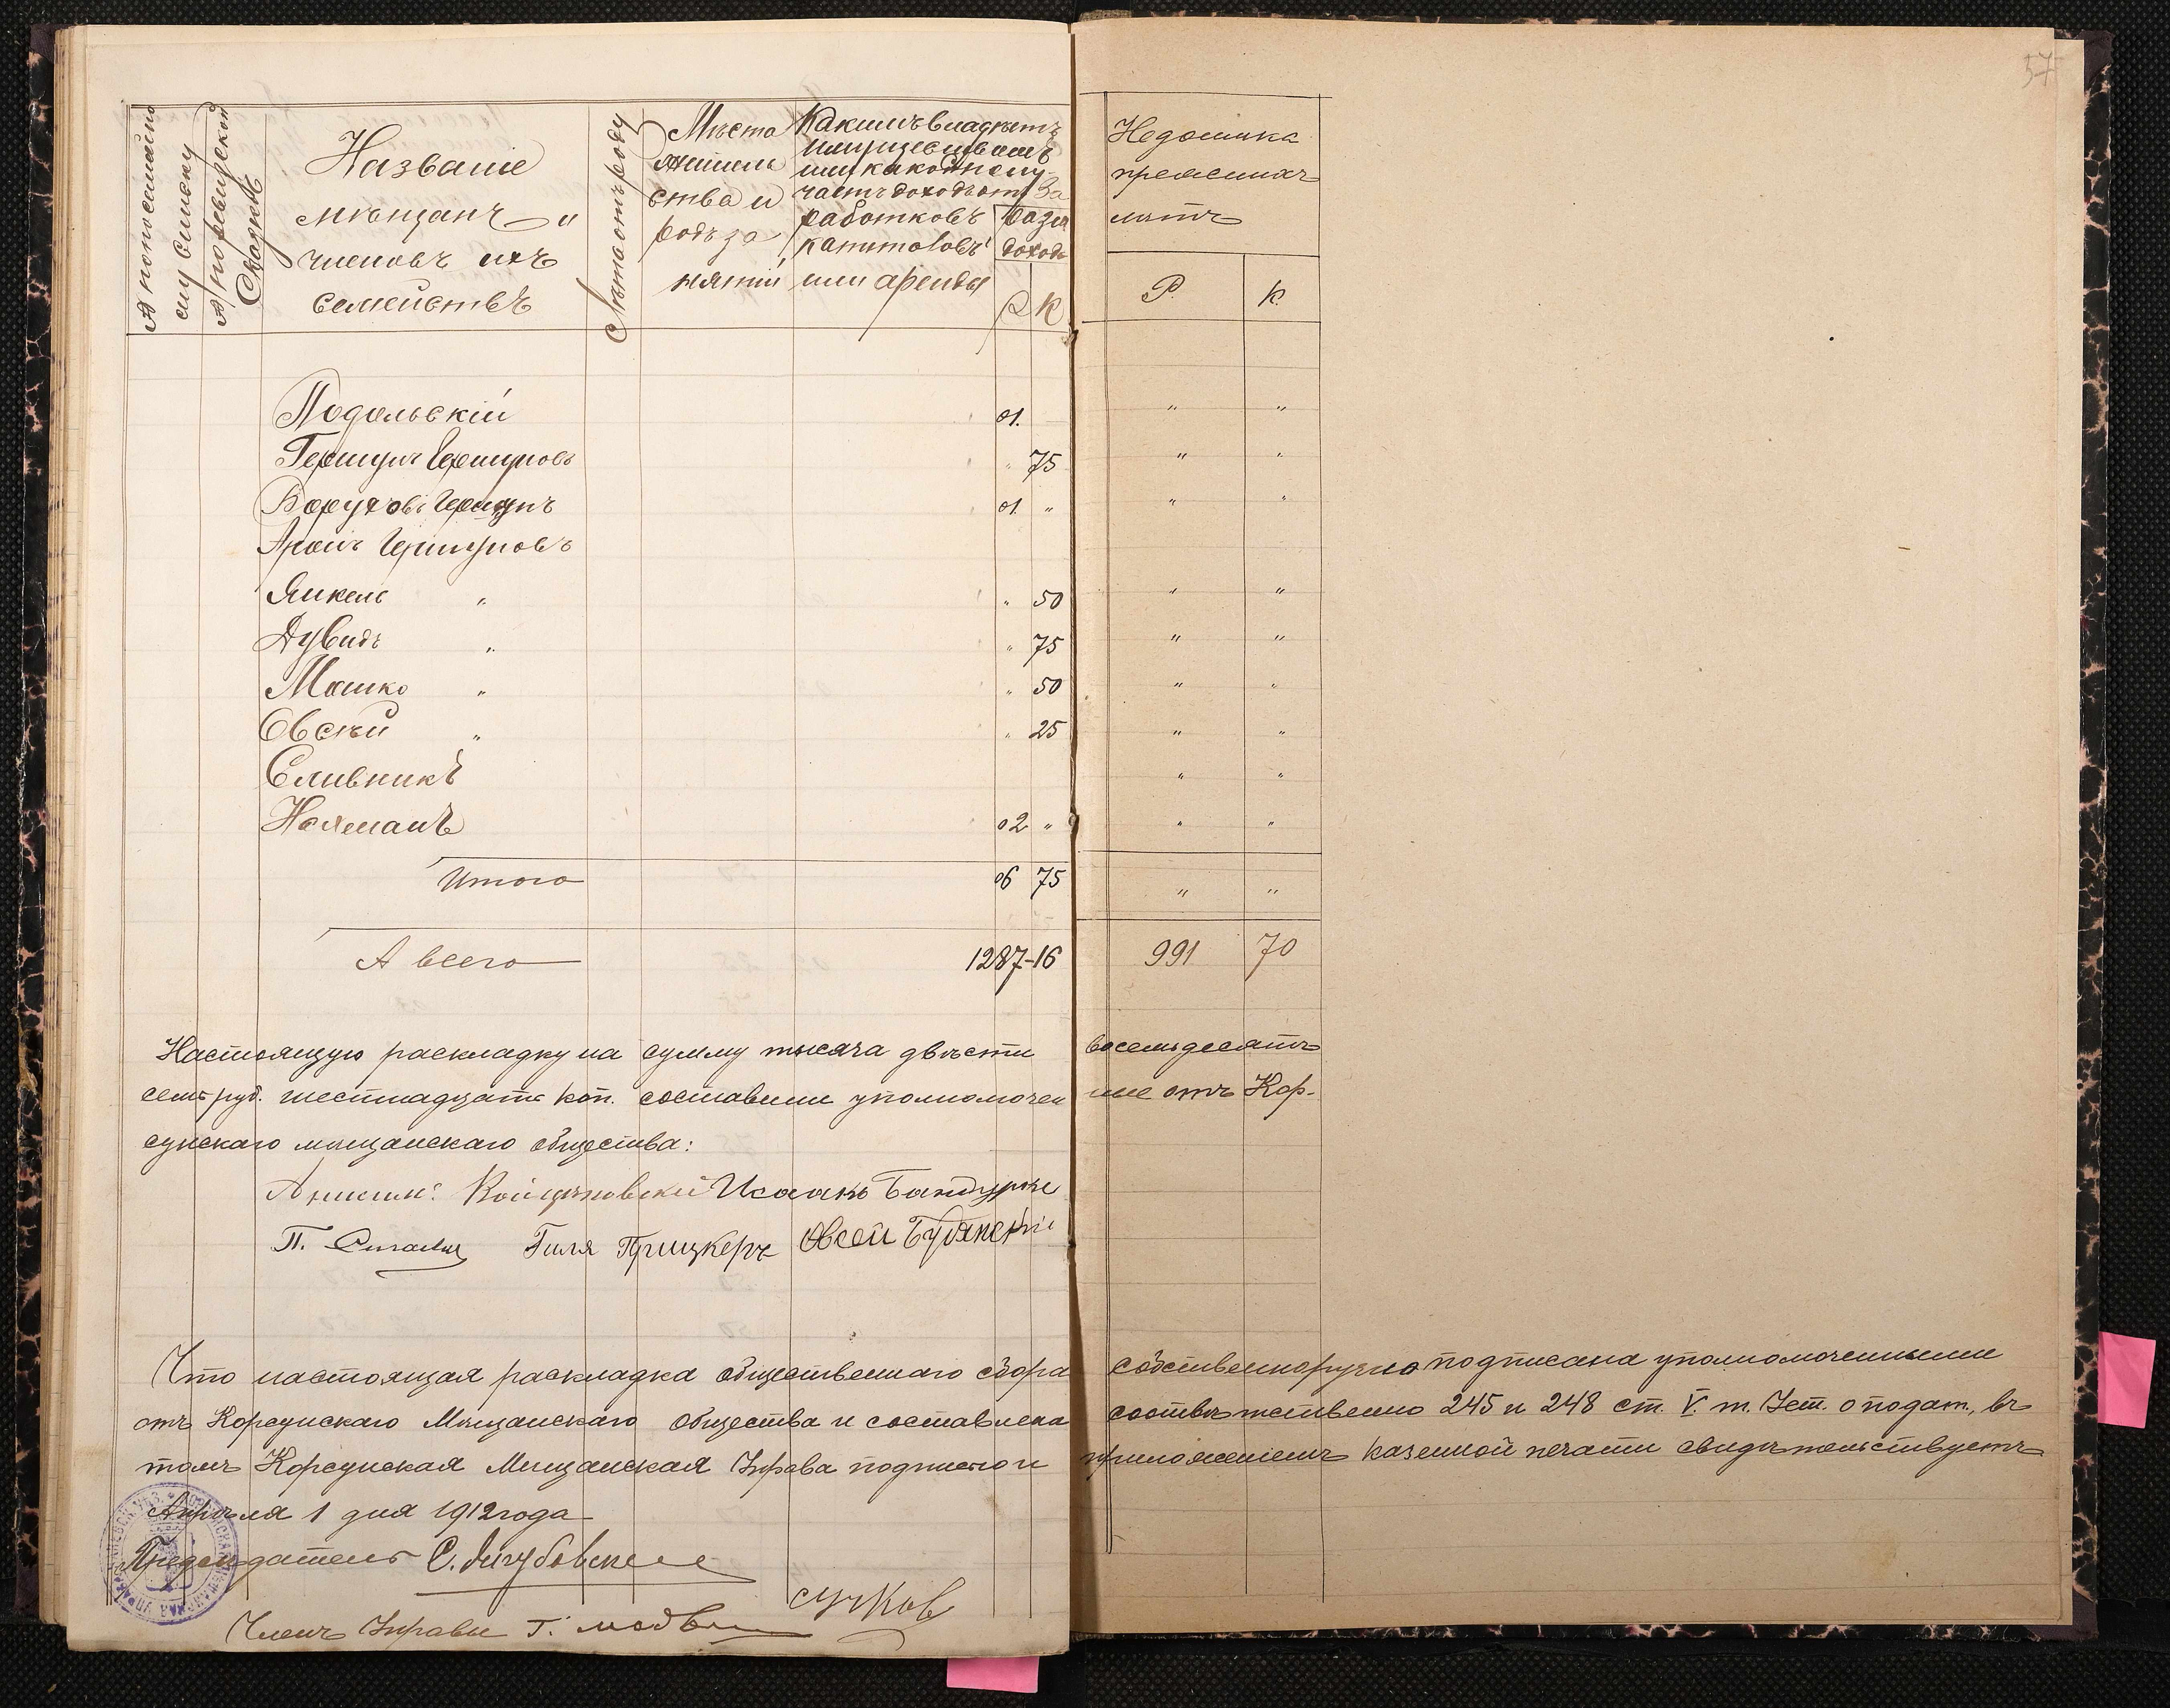 57
№ по посемейно
му списку
№ по ревизской
Сказкѣ
Названіе
мѣщанъ и
членовъ ихъ
семействъ
Лѣта отъ роду
Мѣсто
житель
ства и
родъ за
нятій
Какимъ владѣетъ
имуществомъ
или какой полу-
чаетъ доходъ отъ За
работковъ
капиталовъ
или аренды
доход
Р К
Недоимка
прежнихъ
лѣтъ
Р. К.
Подольскій 01. " "
Гершунъ Гершуновъ " 75 " "
Боруховъ Гершунъ 01. " " "
Аронъ Гершуновъ
Янкель " " 50 " "
Дувидъ " " 75 " "
Мошко " " 50 " "
Овсѣй " " 25 " "
Сливникъ " "
Нахманъ 02 " " "
Итого 06 75 " "
А всего 1287-16 991 70
Настоящую раскладку на сумму тысяча двѣсти восемьдесятъ
семь руб. шестнадцать коп. составили уполномочен ные отъ Кор-
сунскаго мѣщанскаго общества:
Исаакъ
П. Гиля Прицкеръ Овсей Будянскій
Что настоящая раскладка общественнаго сбора собственноручно подписана уполномоченными
отъ Корсунскаго Мѣщанскаго общества и составлена соотвѣтственно 245 и 248 ст. V. т. Уст. о подат., въ
томъ Корсунская Мѣщанская Управа подписью и приложеніемъ казенной печати свидѣтельствуетъ
Апрѣля 1 дня 1912 года
Предсѣдатель С.
Членъ Управы Г.